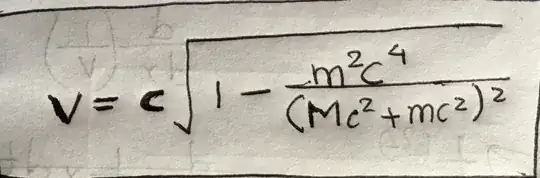 v = c √(1 - m²c⁴/(Mc²+mc²)²)